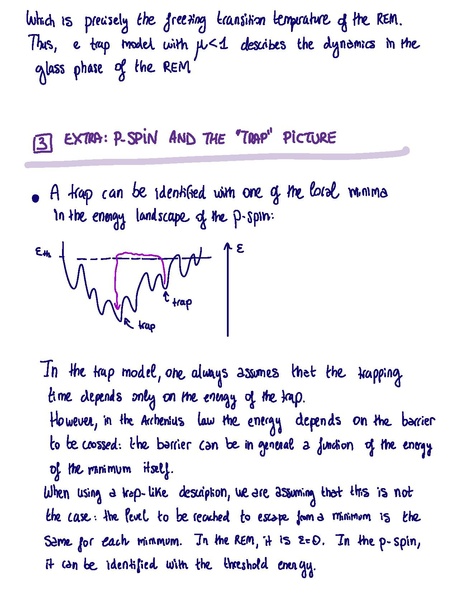 Which is precisely the freezing transition temperature of the REM.
Thus, a trap model with μ<1 describes the dynamics in the
glass phase of the REM
3 EXTRA: P-SPIN AND THE "TRAP" PICTURE
• A trap can be identified with one of the local minima
in the energy landscape of the p-spin:
ε_th
ε
trap
trap
In the trap model, one always assumes that the trapping
time depends only on the energy of the trap.
However, in the Arrhenius law the energy depends on the barrier
to be crossed: the barrier can be in general a function of the energy
of the minimum itself.
When using a trap-like description, we are assuming that this is not
the case: the level to be reached to escape from a minimum is the
same for each minimum. In the REM, it is ε=0. In the p-spin,
it can be identified with the threshold energy.